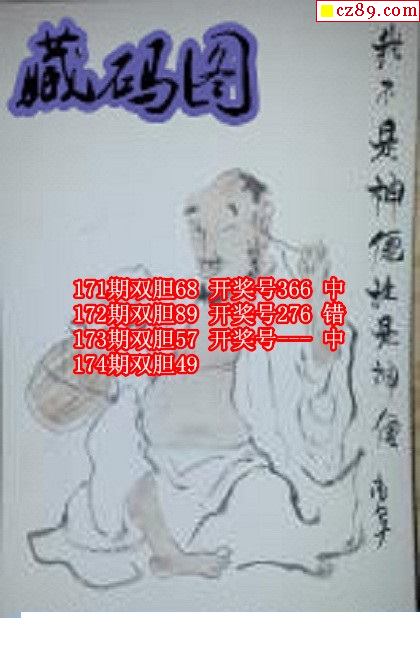 cz89.com
藏码图
我不是神但社是神仙
171期双胆68 开奖号366 中
172期双胆89 开奖号276 错
173期双胆57 开奖号--- 中
174期双胆49